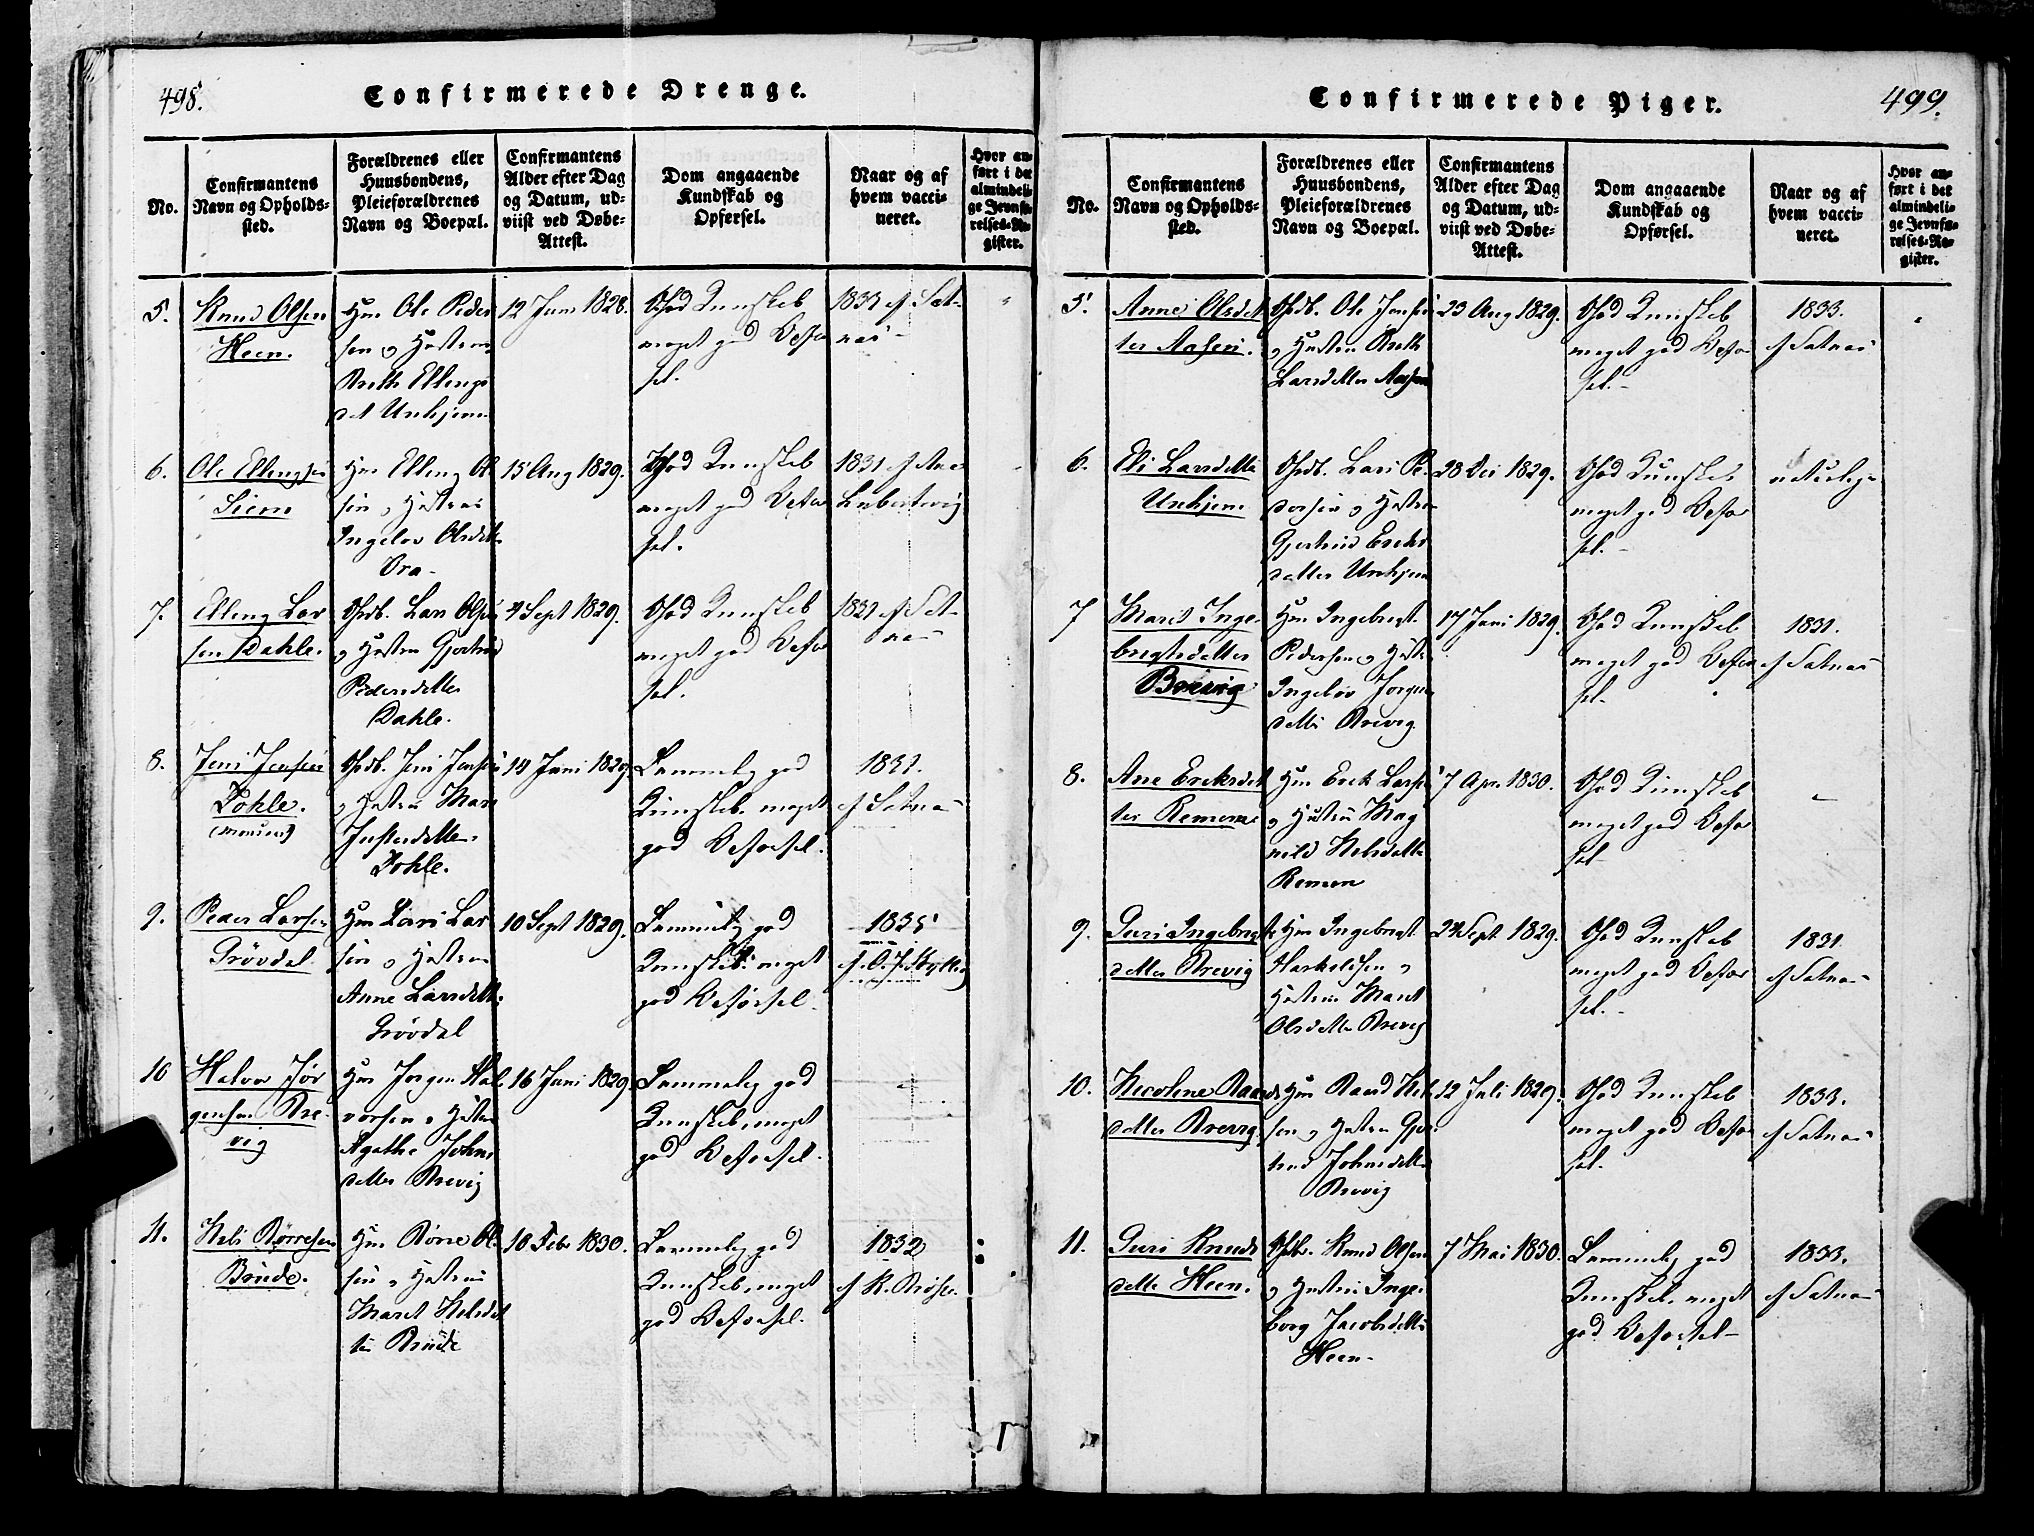 498.
Confirmerede Drenge.
No.
Confirmantens
Navn og Opholds-
sted.
Forældrenes eller
Huusbondens,
Pleieforældrenes
Navn og Boepæl.
Confirmantens
Alder efter Dag
og Datum, ud-
viist ved Døbe-
Attest.
Dom angaaende
Kundskab og
Opførsel.
Naar og af
hvem vacci-
neret.
Hvor an-
ført i det
almindeli-
ge Jevnfø-
relses-Re-
gister.
5.
Knud Olsen
Heen.
Hm Ole Peder
sen og Hustru
Brith Ellings
dt Unhjem
12 Juni 1828.
God Kunskab
meget god Opfør
sel.
1833 af Sæt-
næs
6.
Ole Ellingsen
Siem
Hm Elling Ol
sen og Hustru
Ingelov Olsdatter
Vra.
15 Aug 1829.
God Kunskab
meget god Opfør
sel.
1831 af
7.
Elling Lar
sen Dahle.
Gdb. Lars Olsen
og Hustru Gjertrud
Pedersdatter
Dahle.
4 Sept 1829.
God Kunskab
meget god Opfør
sel.
1831 af Sæt-
næs
8.
Jens Jensen
Dohle.
Gdb. Jens Jensen
og Hustru Mari
Dohle.
14 Juni 1829.
Temmelig god
Kunskab meget
god Opførsel.
1831.
af Sætnæs
9.
Peder Larsen
Grövdal.
Hm Lars Lar
sen og Hustru
Anne Larsdatter
Grövdal
10 Sept 1829.
Temmelig god
Kunskab meget
god Opførsel.
1835
10
Halvor Jör
gensen Bre-
vig
Hm Jorgen Hal
vorsen og Hustru
Agathe Johns
datter Brevig
16 Juni 1829.
Temmelig god
Kunskab, meget
god Opførsel.
11.
Nils Børresen
Brude.
Hm Börre Ol
sen og Hustru
Maret Nilsdat
ter Brude
18 Febr 1830.
Temmelig god
Kunskab, meget
god Opførsel.
1832
499.
Confirmerede Piger.
No.
Confirmantens
Navn og Opholds-
sted.
Forældrenes eller
Huusbondens,
Pleieforældrenes
Navn og Boepæl.
Confirmantens
Alder efter Dag
og Datum, ud-
viist ved Døbe-
Attest.
Dom angaaende
Kundskab og
Opførsel.
Naar og af
hvem vacci-
neret.
Hvor an-
ført i det
almindeli-
ge Jevnfø-
relses-Re-
gister.
5.
Anne Olsdat
ter Aasen.
Gdb. Ole Jensen
og Hustru Brith
Larsdatter Aasen
23 Aug 1829.
God Kunskab
meget god Opfør
sel.
1833.
af Sætnæs
6.
Eli Larsdatter
Unhjem
Gdb. Lars Pe
dersen og Hustru
Gjertrud Ericks
datter Unhjem
28 Dec 1829.
God Kunskab
meget god Opfør
sel.
naturlige
7
Marit Inge
brigtsdatter
Brevig
Hm Ingebrigt
Pedersen og Hustru
Ingelov Jorgens
datter Brevig.
17 Juni 1829.
God Kunskab
meget god Opfør
sel.
1831.
af Sætnæs
8.
Ane Ericksdat
ter Remem
Hm Erick Larsen
og Hustru Mag
nild Nilsdatter
Remem
7 Apr. 1830.
God Kunskab
meget god Opfør
sel
9.
Guri Ingebrigts
datter Brevig
Hm Ingebrigt
og
Hustru Maret
Olsdatter Brevig
24 Sept 1829.
God Kunskab
meget god Opfør
sel.
1831.
af Sætnæs
10.
Nicoline Raands
datter Brevig
Hm Raand Nil
sen og Hustru Gjer
trud Johnsdatter
Brevig
12 Juli 1829.
God Kunskab
meget god Opfør
sel.
1833.
af Sætnæs
11.
Guri Knuds
datter Heen.
Gdb. Knud Olsen
og Hustru Inge
borg Jacobsdatter
Heen.
7 Mai 1830.
Temmelig god
Kunskab meget
god Opførsel
1833.
af Sætnæs